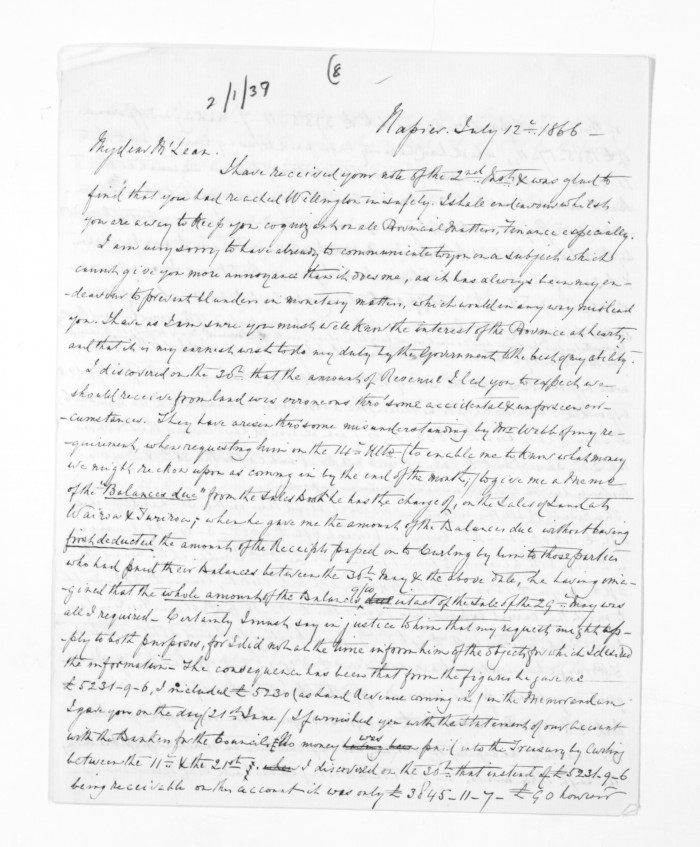 (8
2/1/39
Napier July 12th 1866 -
My dear McLean.
I have received your note of the 2nd Inst; & was glad to
find that you had reached Wellington in safety. I shall endeavour whilst
you are away to keep you cognizant on all Provincial matters, Finance especially.
I am very sorry to have already to communicate to you on a subject which
cannot give you more annoyance than it does me, as it has always been my en-
-deavour to prevent blunders in monetary matters, which would in any way mislead
you. I have as I am sure you must well know the interest of the Province at heart,
and that it is my earnest wish to do my duty by the Government to the best of my ability.
I discovered on the 30th that the amount of Revenue I led you to expect we
should receive from land was erroneous thro' some accidental & unforseen cir-
-cumstances. They have arisen thro' some misunderstanding by Mr Webb of my re-
-quirement, when requesting him on the 14th Ulto (to enable me to know what money
we might reckon upon as coming in by the end of the month,) to give me a Memo
of the "Balances due" from the Sales Book he has the charge of, on the Sales of Land at
Wairoa & Turiroa; when he gave me the amount of the Balances due without having
first deducted the amount of the Receipts passed on to Curling by him to those parties
who had paid their Balances between the 30th May & the above date, he having ima-
-gined that the whole amount of the Balances 9/10 due intact of the Sale of the 29th May was
all I required - Certainly I must say in justice to him that my request might ap-
-ply to both purposes, for I did not at the time inform him of the object for which I desired
the information - The consequence has been that from the figures he gave me
£5231-9-6, I included £5230 (as land Revenue coming in) in the Memorandum
I gave you on the day (21st June) I furnished you with the Statement of our account
with the Bank for the Council; No money was having been paid into the Treasury by Curling
between the 11th & the 21st; when I discovered on the 30th that instead of £5231-9-6
being receivable on this account it was only £3845-11-7 - £90 however